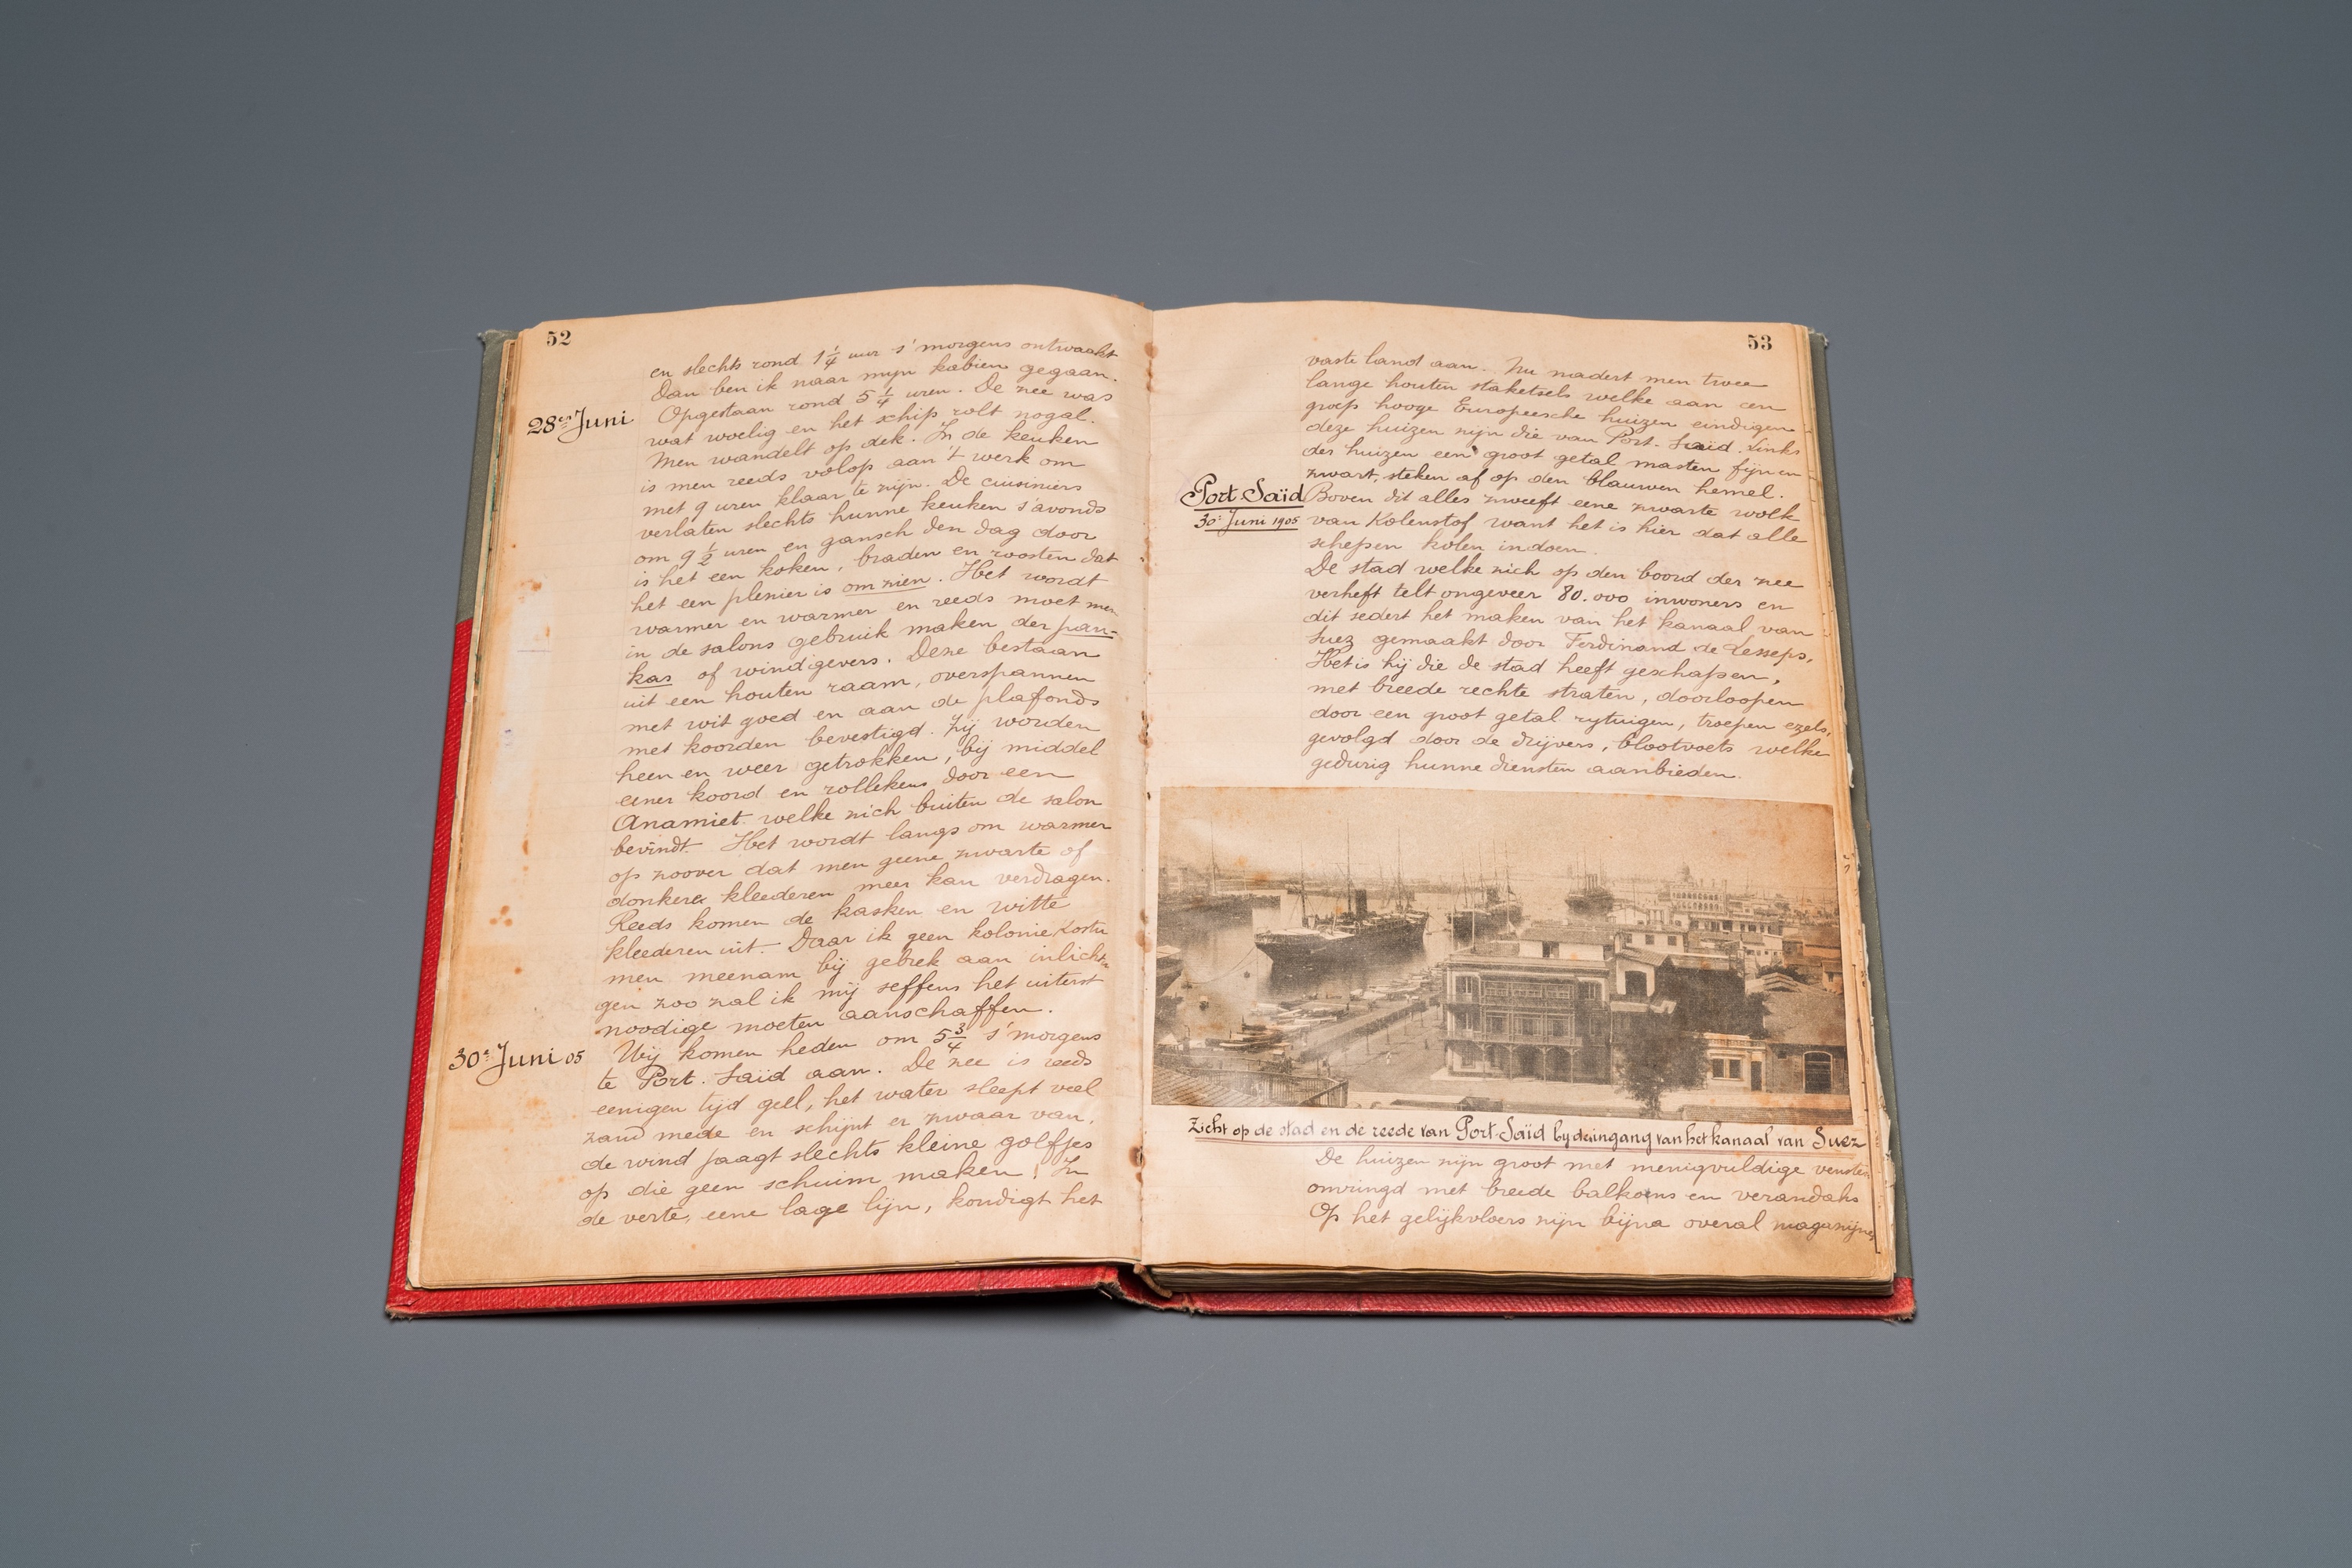 52
en slechts rond 1 1/4 uur s' morgens ontwaakt
Dan ben ik naar mijn kabien gegaan.
28en Juni
Opgestaan rond 5 1/4 uren. De zee was
wat woelig en het schip rolt nogal.
Men wandelt op dek. In de keuken
is men reeds volop aan 't werk om
met 9 uren klaar te zijn. De cuisiniers
verlaten slechts hunne keuken s'avonds
om 9 1/2 uren en gansch den dag door
is het een koken, braden en roosten dat
het een plezier is om zien. Het wordt
warmer en warmer en reeds moet men
in de salons gebruik maken der pan-
kas of windgevers. Deze bestaan
uit een houten raam, overspannen
met wit goed en aan de plafonds
met koorden bevestigd. Zij worden
heen en weer getrokken, bij middel
eener koord en rollekens door een
Anamiet welke zich buiten de salon
bevindt. Het wordt langs om warmer
op zoover dat men geene zwarte of
donkere kleederen meer kan verdragen.
Reeds komen de kasken en witte
kleederen uit. Daar ik geen kolonie kostu
men meenam bij gebrek aan inlicht-
gen zoo zal ik mij seffens het uiterst
noodige moeten aanschaffen.
30e Juni 05
Wij komen heden om 5 3/4 s' morgens
te Port. Saïd aan. De zee is reeds
eenigen tijd geel, het water sleept veel
zand mede en schijnt er zwaar van,
de wind jaagt slechts kleine golfjes
op die geen schuim maken. In
de verte, eene lage lijn, kondigt het
53
vaste land aan. Nu nadert men twee
lange houten staketsels welke aan een
groep hooge Europeesche huizen eindigen
deze huizen zijn die van Port. Saïd. Links
der huizen een groot getal masten fijn en
zwart, steken af op den blauwen hemel.
Port Saïd
30e Juni 1905
Boven dit alles zweeft eene zwarte wolk
van Kolenstof want het is hier dat alle
schepen kolen indoen.
De stad welke zich op den boord der zee
verheft telt ongeveer 80.000 inwoners en
dit sedert het maken van het kanaal van
Suez gemaakt door Ferdinand de Lesseps,
Het is hij die de stad heeft geschapen,
met breede rechte straten, doorloopen
door een groot getal rytuigen, troepen ezels,
gevolgd door de drijvers, blootvoets welke
gedurig hunne diensten aanbieden.
Zicht op de stad en de reede van Port-Saïd by den ingang van het kanaal van Suez
De huizen zijn groot met menigvuldige vensters
omringd met breede balkons en verandahs
Op het gelijkvloers zijn bijna overal magazijnen